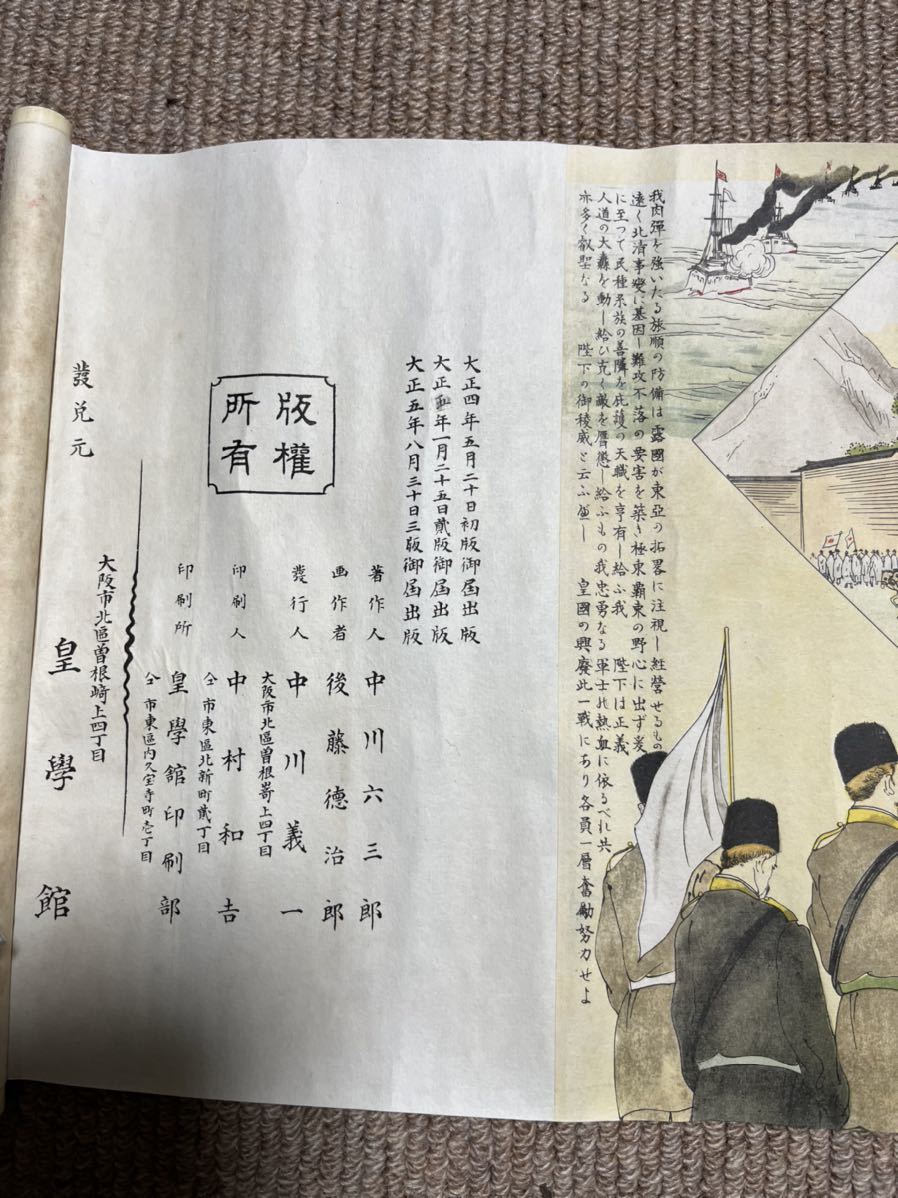 我肉彈を強いたる旅順の防備は露國が東亞の拓畧に注視し経營せるもの
遠く北清事變に基因し難攻不落の要害を築き極東覇東の野心に出ず爰
に至つて民種系族の善隣を庇護の天職を享有し給ふ我 陛下は正義
人道の大纛を動し給ひ克く敵を膺懲し給ふもの我忠勇なる軍士の熱血に依るべれ共
亦多く叡聖なる 陛下の御稜威と云ふ可し 皇國の興廢此一戰にあり各員一層奮勵努力せよ
大正四年五月二十日初版御届出版
大正五年一月二十五日貳版御届出版
大正五年八月三十日三版御届出版
著作人 中川六三郎
画作者 後藤德治郎
發行人 中川義一
大阪市北區曽根嵜上四丁目
印刷人 中村和吉
仝市東區北新町貳丁目
印刷所 皇學館印刷部
仝市東區内久宝寺町壱丁目
版權
所有
大阪市北區曽根崎上四丁目
發兌元 皇學館